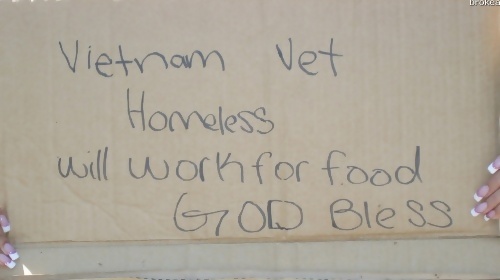 Vietnam Vet
Homeless
will work for food
GOD Bless